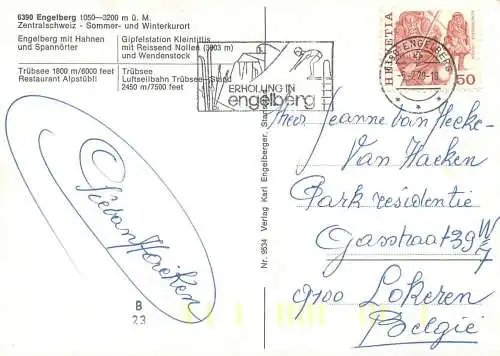 6390 Engelberg 1050—3200 m ü. M.
Zentralschweiz - Sommer- und Winterkurort
Engelberg mit Hahnen
und Spannörter
Gipfelstation Kleintitlis
mit Reissend Nollen (3003 m)
und Wendenstock
Trübsee 1800 m/6000 feet
Restaurant Alpstübli
Trübsee
Luftseilbahn Trübsee-Stand
2450 m/7500 feet
ERHOLUNG IN
engelberg
HELVETIA
50
6390 ENGELBERG
Nr. 9534 Verlag Karl Engelberger,
Jeanne van Hecke-
Van Haeken
Park residentie
Gasstraat 39 W/7
9100 Lokeren
België
B
23